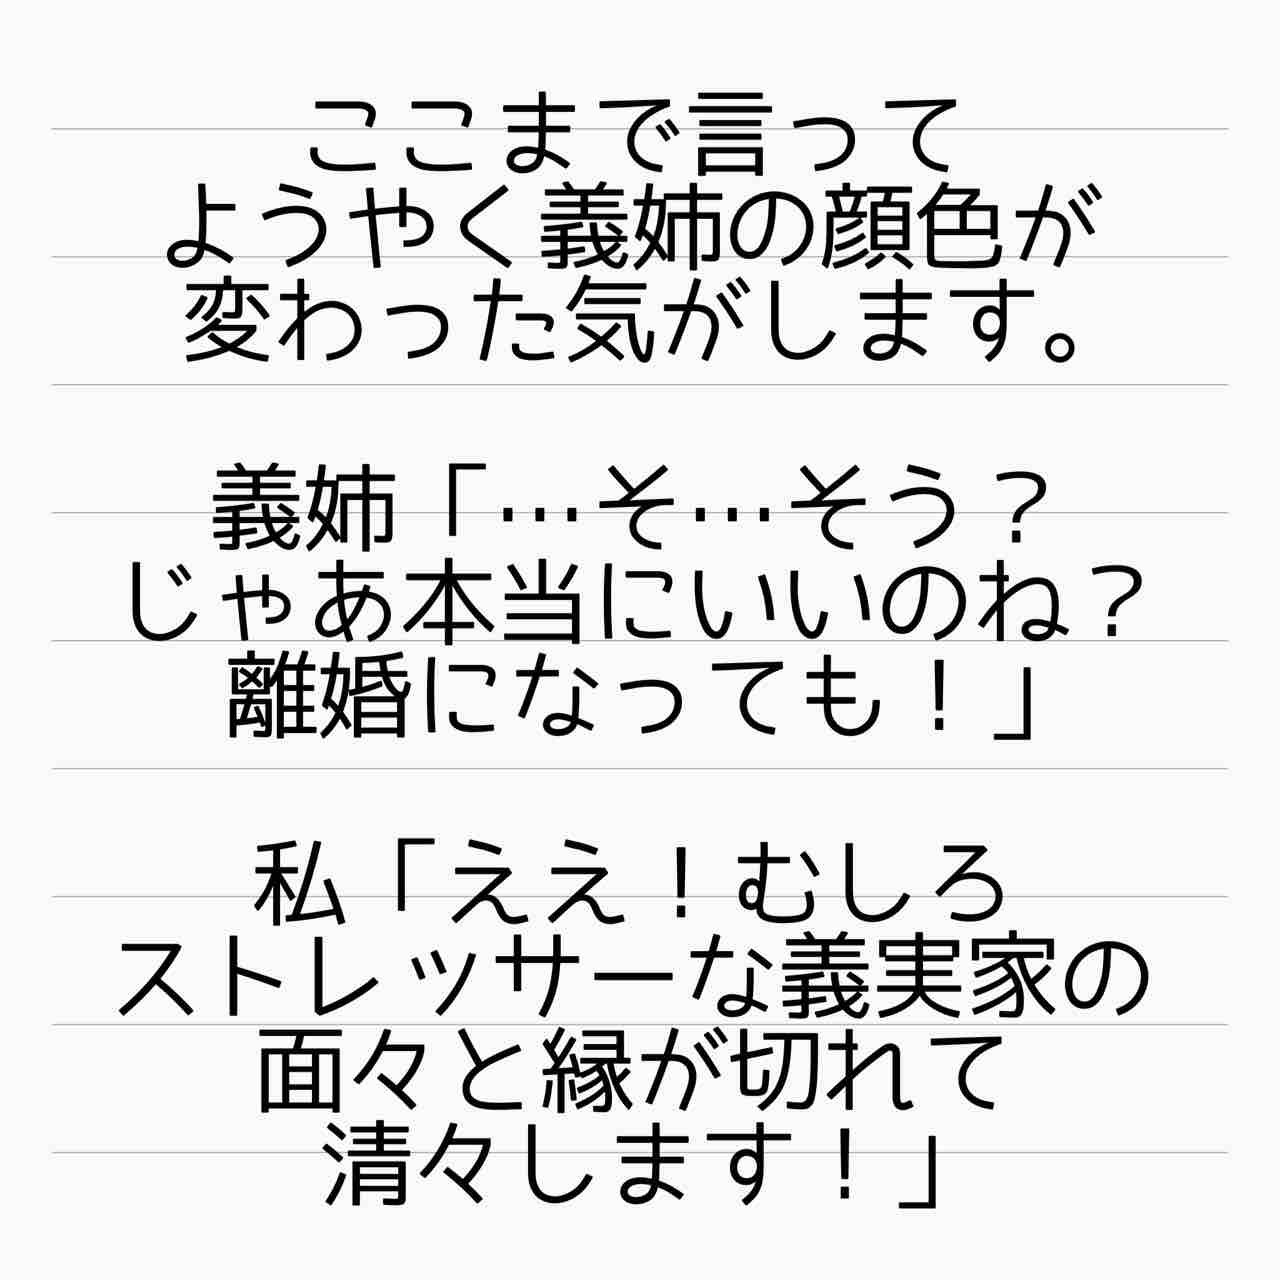 ここまで言って
ようやく義姉の顔色が
変わった気がします。
義姉「…そ…そう？
じゃあ本当にいいのね？
離婚になっても！」
私「ええ！むしろ
ストレッサーな義実家の
面々と縁が切れて
清々します！」